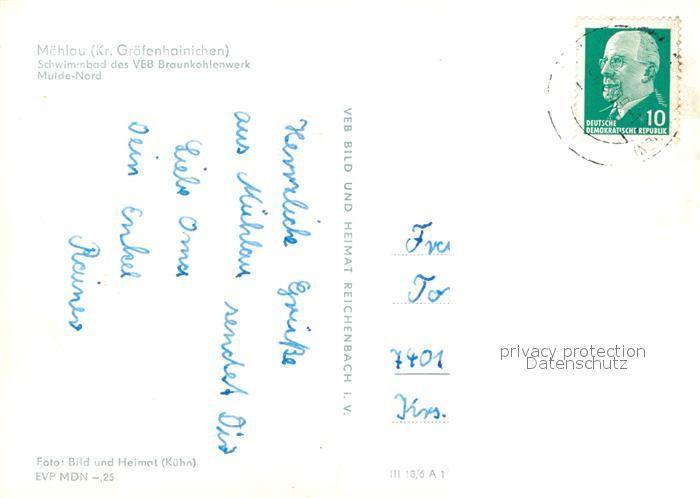 Möhlau (Kr. Gräfenhainichen)
Schwimmbad des VEB Braunkohlenwerk
Mulde-Nord
Herrzliche Grüße
aus Mühlau sendet Dir
Liebe Oma
Dein Enkel
Rainer
Foto: Bild und Heimat (Kühn)
EVP MDN –,25
VEB BILD UND HEIMAT REICHENBACH i. V.
10
DEUTSCHE
DEMOKRATISCHE REPUBLIK
Fra
To
7401
Krs.
privacy protection
Datenschutz
III 18/6 A 1